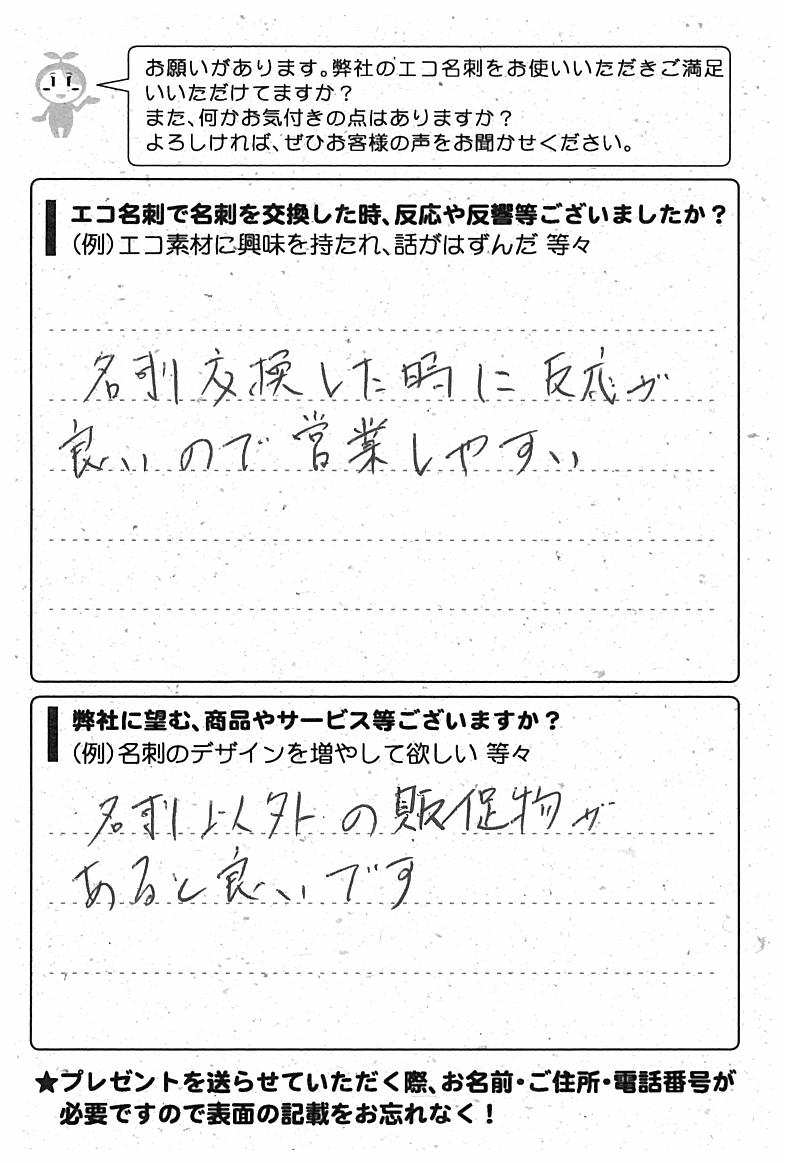 お願いがあります。弊社のエコ名刺をお使いいただきご満足
いいただけてますか？
また、何かお気付きの点はありますか？
よろしければ、ぜひお客様の声をお聞かせください。
エコ名刺で名刺を交換した時、反応や反響等ございましたか？
（例）エコ素材に興味を持たれ、話がはずんだ 等々
名刺交換した時に反応が
良いので営業しやすい
弊社に望む、商品やサービス等ございますか？
（例）名刺のデザインを増やして欲しい 等々
名刺以外の販促物が
あると良いです
★プレゼントを送らせていただく際、お名前・ご住所・電話番号が
必要ですので表面の記載をお忘れなく！